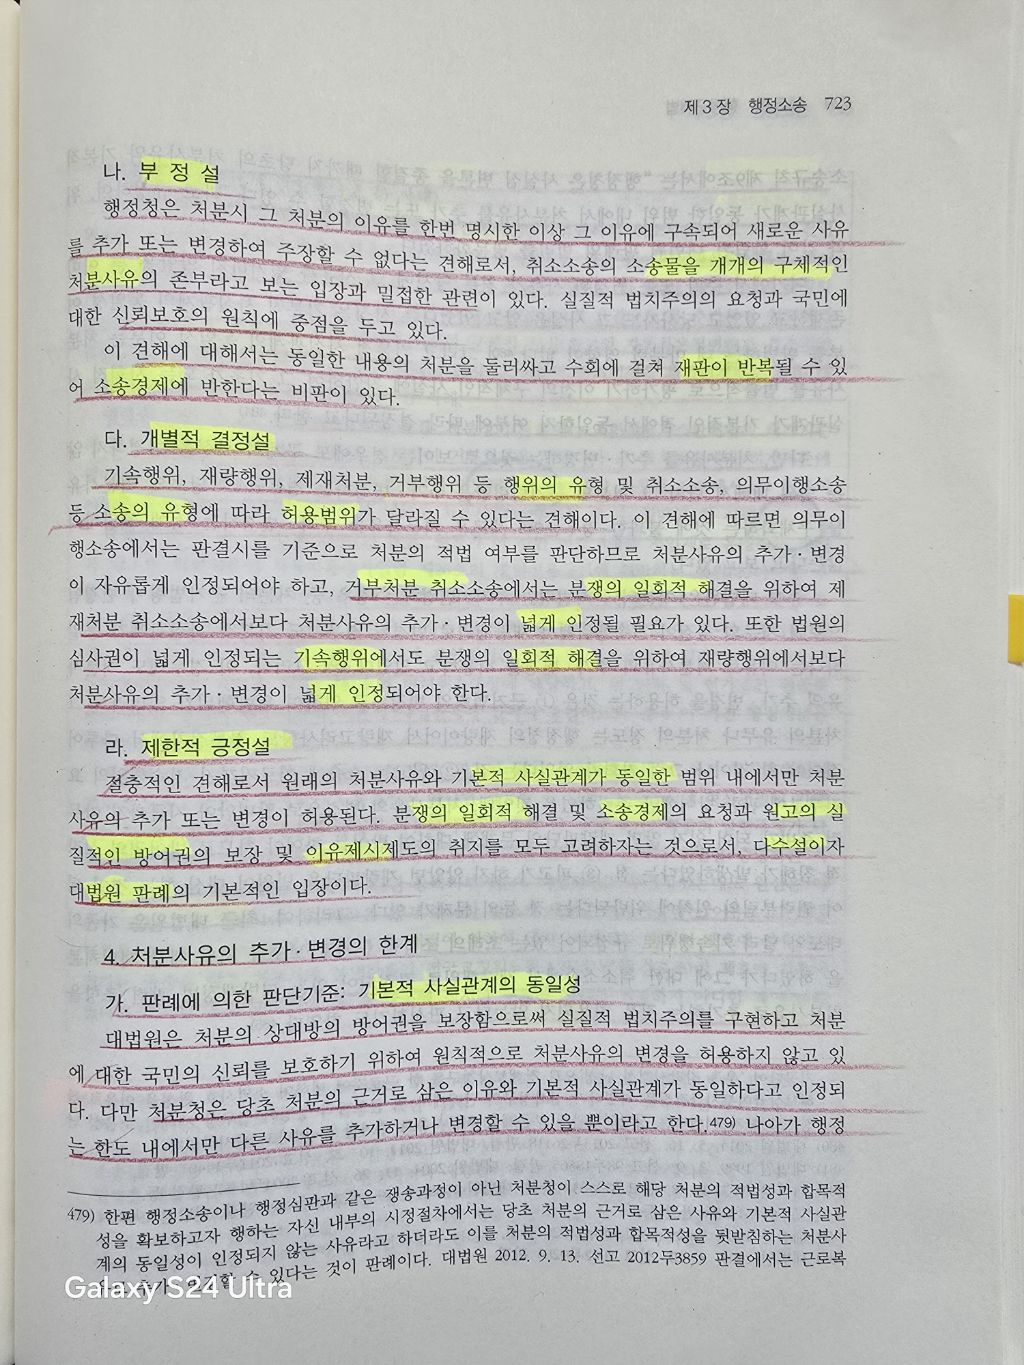 제3장 행정소송 723
나. 부 정 설
행정청은 처분시 그 처분의 이유를 한번 명시한 이상 그 이유에 구속되어 새로운 사유
를 추가 또는 변경하여 주장할 수 없다는 견해로서, 취소소송의 소송물을 개개의 구체적인
처분사유의 존부라고 보는 입장과 밀접한 관련이 있다. 실질적 법치주의의 요청과 국민에
대한 신뢰보호의 원칙에 중점을 두고 있다.
이 견해에 대해서는 동일한 내용의 처분을 둘러싸고 수회에 걸쳐 재판이 반복될 수 있
어 소송경제에 반한다는 비판이 있다.
다. 개별적 결정설
기속행위, 재량행위, 제재처분, 거부행위 등 행위의 유형 및 취소소송, 의무이행소송
등 소송의 유형에 따라 허용범위가 달라질 수 있다는 견해이다. 이 견해에 따르면 의무이
행소송에서는 판결시를 기준으로 처분의 적법 여부를 판단하므로 처분사유의 추가·변경
이 자유롭게 인정되어야 하고, 거부처분 취소소송에서는 분쟁의 일회적 해결을 위하여 제
재처분 취소소송에서보다 처분사유의 추가·변경이 넓게 인정될 필요가 있다. 또한 법원의
심사권이 넓게 인정되는 기속행위에서도 분쟁의 일회적 해결을 위하여 재량행위에서보다
처분사유의 추가·변경이 넓게 인정되어야 한다.
라. 제한적 긍정설
절충적인 견해로서 원래의 처분사유와 기본적 사실관계가 동일한 범위 내에서만 처분
사유의 추가 또는 변경이 허용된다. 분쟁의 일회적 해결 및 소송경제의 요청과 원고의 실
질적인 방어권의 보장 및 이유제시제도의 취지를 모두 고려하자는 것으로서, 다수설이자
대법원 판례의 기본적인 입장이다.
4. 처분사유의 추가·변경의 한계
가. 판례에 의한 판단기준: 기본적 사실관계의 동일성
대법원은 처분의 상대방의 방어권을 보장함으로써 실질적 법치주의를 구현하고 처분
에 대한 국민의 신뢰를 보호하기 위하여 원칙적으로 처분사유의 변경을 허용하지 않고 있
다. 다만 처분청은 당초 처분의 근거로 삼은 이유와 기본적 사실관계가 동일하다고 인정되
는 한도 내에서만 다른 사유를 추가하거나 변경할 수 있을 뿐이라고 한다.479) 나아가 행정
479) 한편 행정소송이나 행정심판과 같은 쟁송과정이 아닌 처분청이 스스로 해당 처분의 적법성과 합목적
성을 확보하고자 행하는 자신 내부의 시정절차에서는 당초 처분의 근거로 삼은 사유와 기본적 사실관
계의 동일성이 인정되지 않는 사유라고 하더라도 이를 처분의 적법성과 합목적성을 뒷받침하는 처분사
수 있다는 것이 판례이다. 대법원 2012. 9. 13. 선고 2012두3859 판결에서는 근로복
Galaxy S24 Ultra